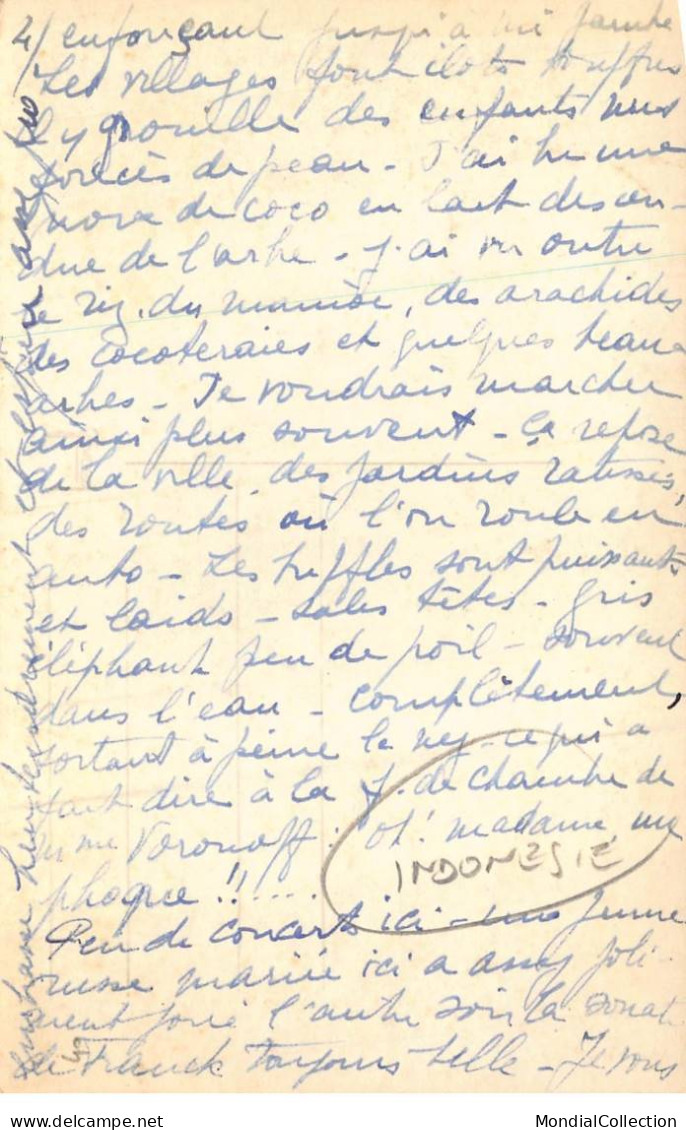 4/ enfonçant jusqu'à mi jambe
Les villages sont ilots touffus
Il y grouille des enfants nus
foncés de peau - J'ai bu une
noix de coco en lait descen-
due de l'arbre - J'ai vu outre
le riz, du manioc, des arachides
des cocoteraies et quelques beaux
arbres - Je voudrais marcher
ainsi plus souvent - ça repose
de la ville, des jardins ratissés,
des routes où l'on roule en
auto - Les buffles sont puissants
et laids - sales têtes - gris
éléphant peu de poil - souvent
dans l'eau - complètement,
sortant à peine le nez - ce qui a
fait dire à la f. de chambre de
Mme Voronoff : "oh! madame, un
phoque"!!....
INDONESIE
Peu de concerts ici - une jeune
russe mariée ici a assez joli-
ment joué l'autre soir la sonate
de Franck toujours belle - Je vous
embrasse bien tendrement et
MondialCollection